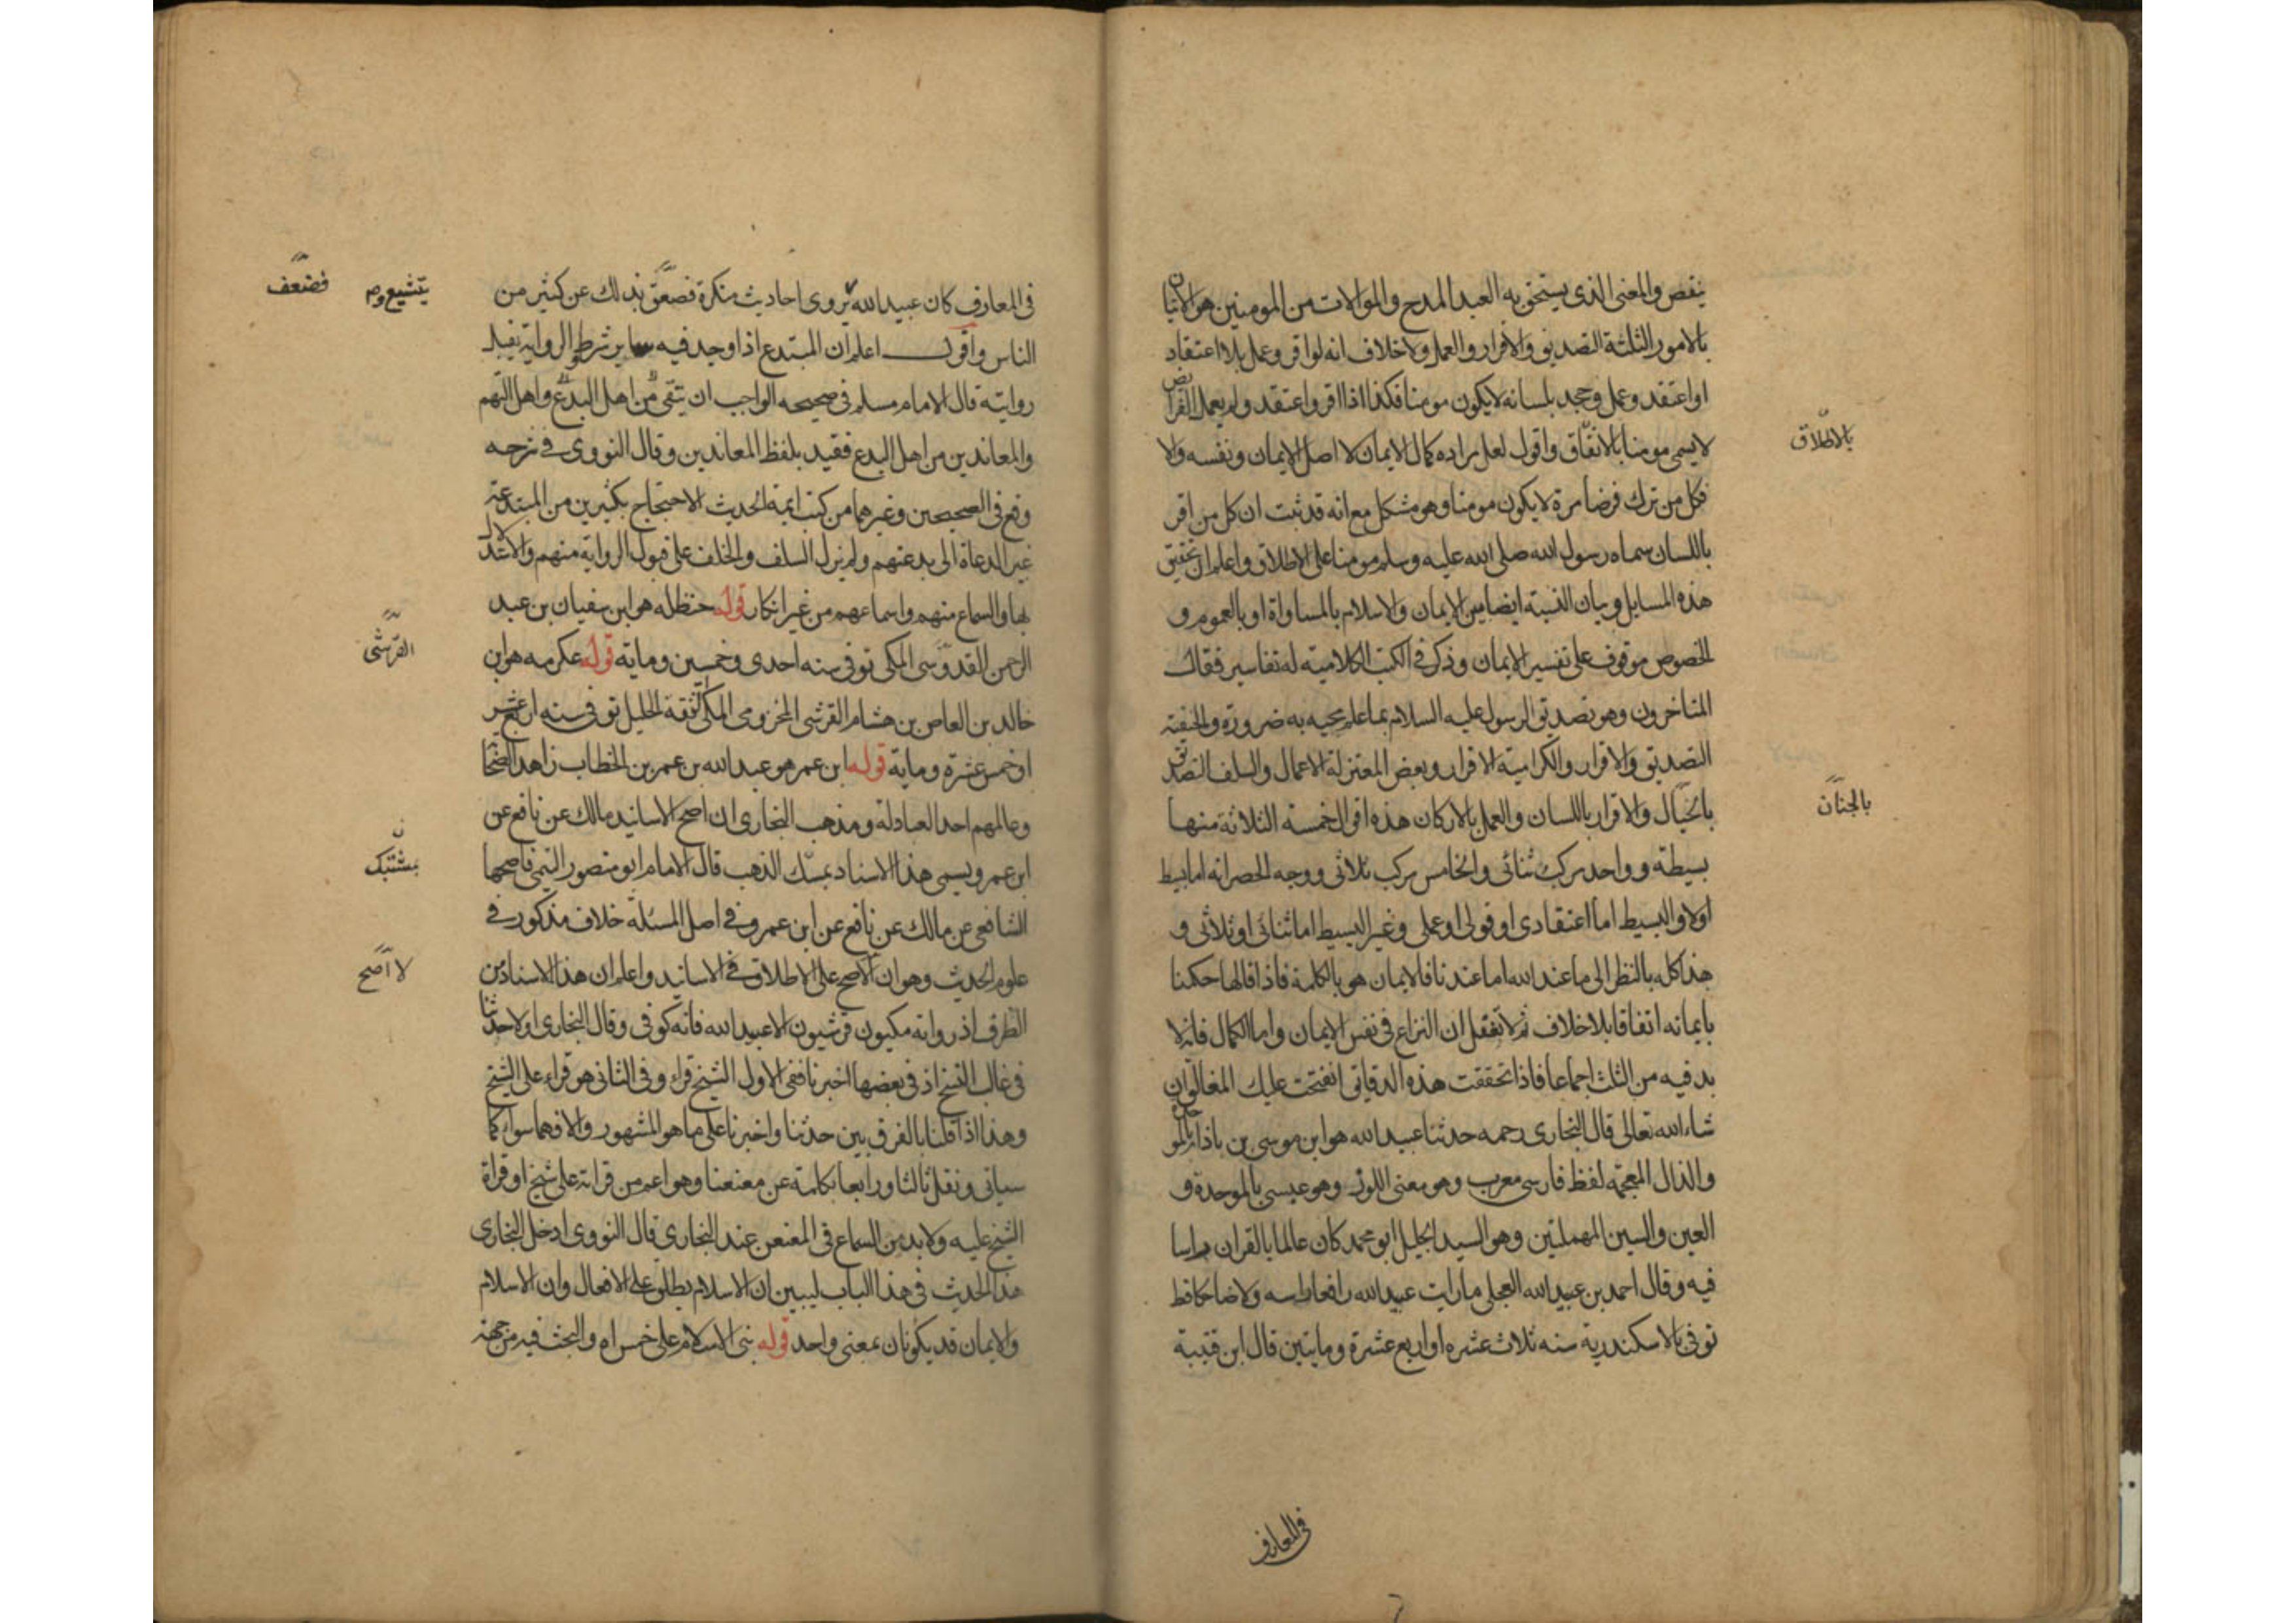 ينقص والمعنى الذى يستحق به العبد المدح والموالات من المومنين هو الاتيان
بالامور الثلثة التصديق والاقرار والعمل ولا خلاف انه لو اقر وعمل بلا اعتقاد
او اعتقد وعمل وجحد بلسانه لا يكون مومنا فكذا اذا اقر واعتقد ولم يعمل الفرايض
لا يسمى مومنا بالاتفاق واقول لعل مراده كمال الايمان لا اصل الايمان ونفسه والا
بالاطلاق
فكل من ترك فرضا مرة لا يكون مومنا وهو مشكل مع انه قد ثبت ان كل من اقر
باللسان سماه رسول الله صلى الله عليه وسلم مومنا على الاطلاق واعلم ان تحقيق
هذه المسايل وبيان النسبة ايضا بين الايمان والاسلام بالمساواة او بالعموم و
الخصوص موقوف على تفسير الايمان وذكر فى الكتب الكلامية له تفاسير فقال
المتاخرون وهو تصديق الرسول عليه السلام بما علم مجيه به ضرورة والحنفية
التصديق والاقرار والكرامية الاقرار وبعض المعتزلة الاعمال والسلف التصديق
بالخيال والاقرار باللسان والعمل بالاركان هذه اقوال خمسة الثلاثة منها
بالجنان
بسيطة وواحد مركب ثنائى والخامس مركب ثلاثى ووجه الحصر انه اما بسيط
اولا والبسيط اما اعتقادى او قولى او عملى وغير البسيط اما ثنائى او ثلاثى و
هذا كله بالنظر الى ما عند الله اما عندنا فالايمان هو بالكلمة فاذا قالها حكمنا
بايمانه اتفاقا بلا خلاف ثم لا تغفل ان النزاع فى نفس الايمان واما الكمال فانه لا
بد فيه من الثلث اجماعا فاذا تحققت هذه الدقايق انفتحت عليك المغالق ان
شاء الله تعالى قال البخارى رحمه حدثنا عبيد الله هو ابن موسى بن باذام بالموحدة
والذال المعجمة لفظ فارسى معرب وهو معنى اللوز وهو عبسى بالموحدة و
العين والسين المهملتين وهو السيد الجليل ابو محمد كان عالما بالقران راسا
فيه وقال احمد بن عبيد الله العجلى ما رايت عبيد الله رافعا راسه ولا ضاحكا قط
توفى بالاسكندرية سنه ثلاث عشره او اربع عشرة ومايتين قال ابن قتيبة
فى المعارف
فى المعارف كان عبيد الله يروى احاديث منكرة فضعف بذلك عن كثير من
يتشيع و م
فضعف
الناس واقول اعلم ان المبتدع اذا وجد فيه ساير شرط الرواية يقبل
روايته قال الامام مسلم فى صحيحه الواجب ان يتقى من اهل البدع واهل التهم
والمعاندين من اهل البدع فقيد بلفظ المعاندين وقال النووى فى شرحه
وقع فى الصحيحين وغيرهما من كتب ايمة الحديث الاحتجاج بكثيرين من المبتدعة
غير الدعاة الى بدعتهم ولم يزل السلف والخلف على قبول الرواية منهم والاستدلال
بها والسماع منهم واسماعهم من غير انكار قوله حنظله هو ابن سفيان بن عبد
الرحمن القدوسى المكى توفى سنه احدى وخمسين وماية قوله عكرمه هو ابن
القرشى
خالد بن العاص بن هشام القرشى المخزومى المكى الثقة الجليل توفى سنه اربع عشر
او خمس عشرة وماية قوله ابن عمر هو عبد الله بن عمر بن الخطاب زاهد الصحابة
وعالمهم احد العبادلة ومذهب البخارى ان اصح الاسانيد مالك عن نافع عن
ابن عمر ويسمى هذا الاسناد بمسك الذهب قال الامام ابو منصور التيمى فاصحها
بمشتبك
الشافعى عن مالك عن نافع عن ابن عمر وفى اصل المسئلة خلاف مذكور فى
علوم الحديث وهو ان الاصح على الاطلاق فى الاسانيد واعلم ان هذا الاسناد من
لا اصح
الطرف اذ رواته مكيون قرشيون الا عبيد الله فانه كوفى وقال البخارى اولا حدثنا
فى غالب النسخ اذ فى بعضها اخبرنا ففى الاول الشيخ قراء وفى الثانى هو قراء على الشيخ
وهذا اذا قلنا بالفرق بين حدثنا واخبرنا على ما هو المشهور والا فهما سواء كما
سياتى ونقل ثالثا ورابعا بكلمة عن معنعنا وهو اعم من قراته على شيخ او قراة
الشيخ عليه ولا بد من السماع فى المعنعن عند البخارى قال النووى ادخل البخارى
هذا الحديث فى هذا الباب ليبين ان الاسلام يطلق على الافعال وان الاسلام
والايمان قد يكونان بمعنى واحد قوله بنى الاسلام على خمس اه والبحث فيه من جهة